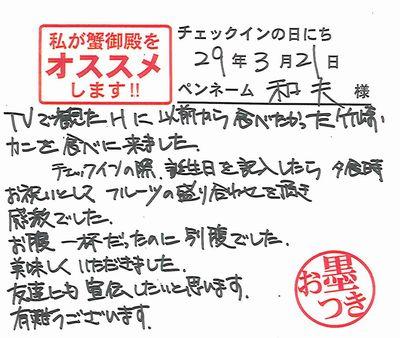 私が蟹御殿を
オススメ
します!!
チェックインの日にち
29年3月21日
ペンネーム 和夫 様
TVで観たHに以前から食べたかった竹崎
カニを食べに来ました。
チェックインの際、誕生日を記入したら 夕食時
お祝いとして フルーツの盛り合わせを頂き
感激でした。
お腹一杯だったのに別腹でした。
美味しくいただきました。
友達にも宣伝したいと思います。
有難うございます。
お墨つき